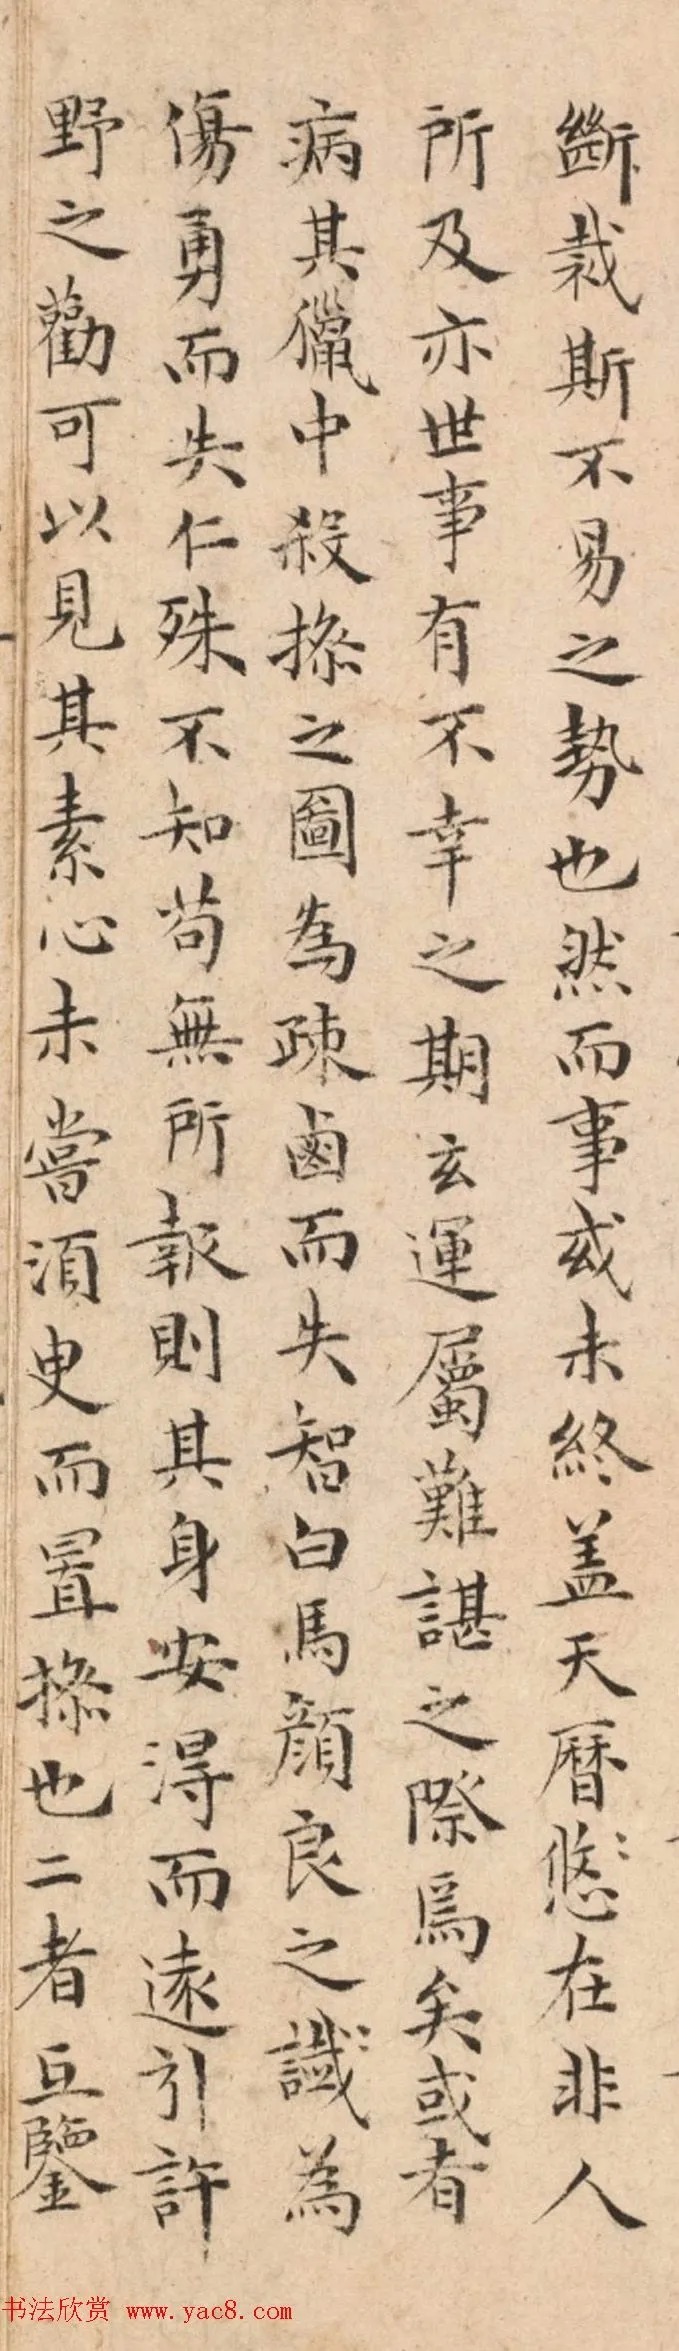 斷裁斯不易之勢也然而事或未終盖天曆悠〻在非人
所及亦世事有不幸之期玄運屬難諶之際焉矣或者
病其獵中殺操之圖為疎鹵而失智白馬顔良之誠〻為
傷勇而失仁殊不知苟無所報則其身安得而遠引許
野之勸可以見其素心未嘗須臾而置操也二者互鑒
书法欣赏 www.yac8.com